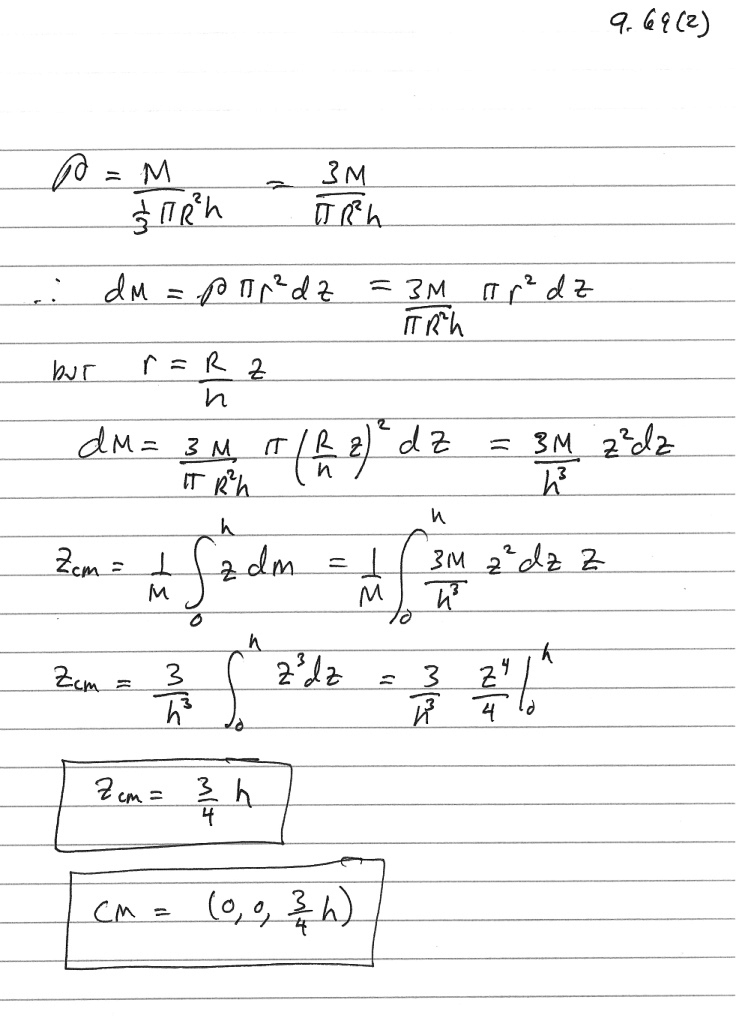 9.69(2)
ρ = M / (1/3 πR²h) = 3M / (πR²h)
∴ dM = ρπr²dz = 3M / (πR²h) πr²dz
but r = R/h z
dM = 3M / (πR²h) π (R/h z)² dz = 3M/h³ z²dz
Zcm = 1/M ∫₀ʰ z dm = 1/M ∫₀ʰ 3M/h³ z²dz z
Zcm = 3/h³ ∫₀ʰ z³dz = 3/h³ z⁴/4 |₀ʰ
Zcm = 3/4 h
CM = (0, 0, 3/4 h)